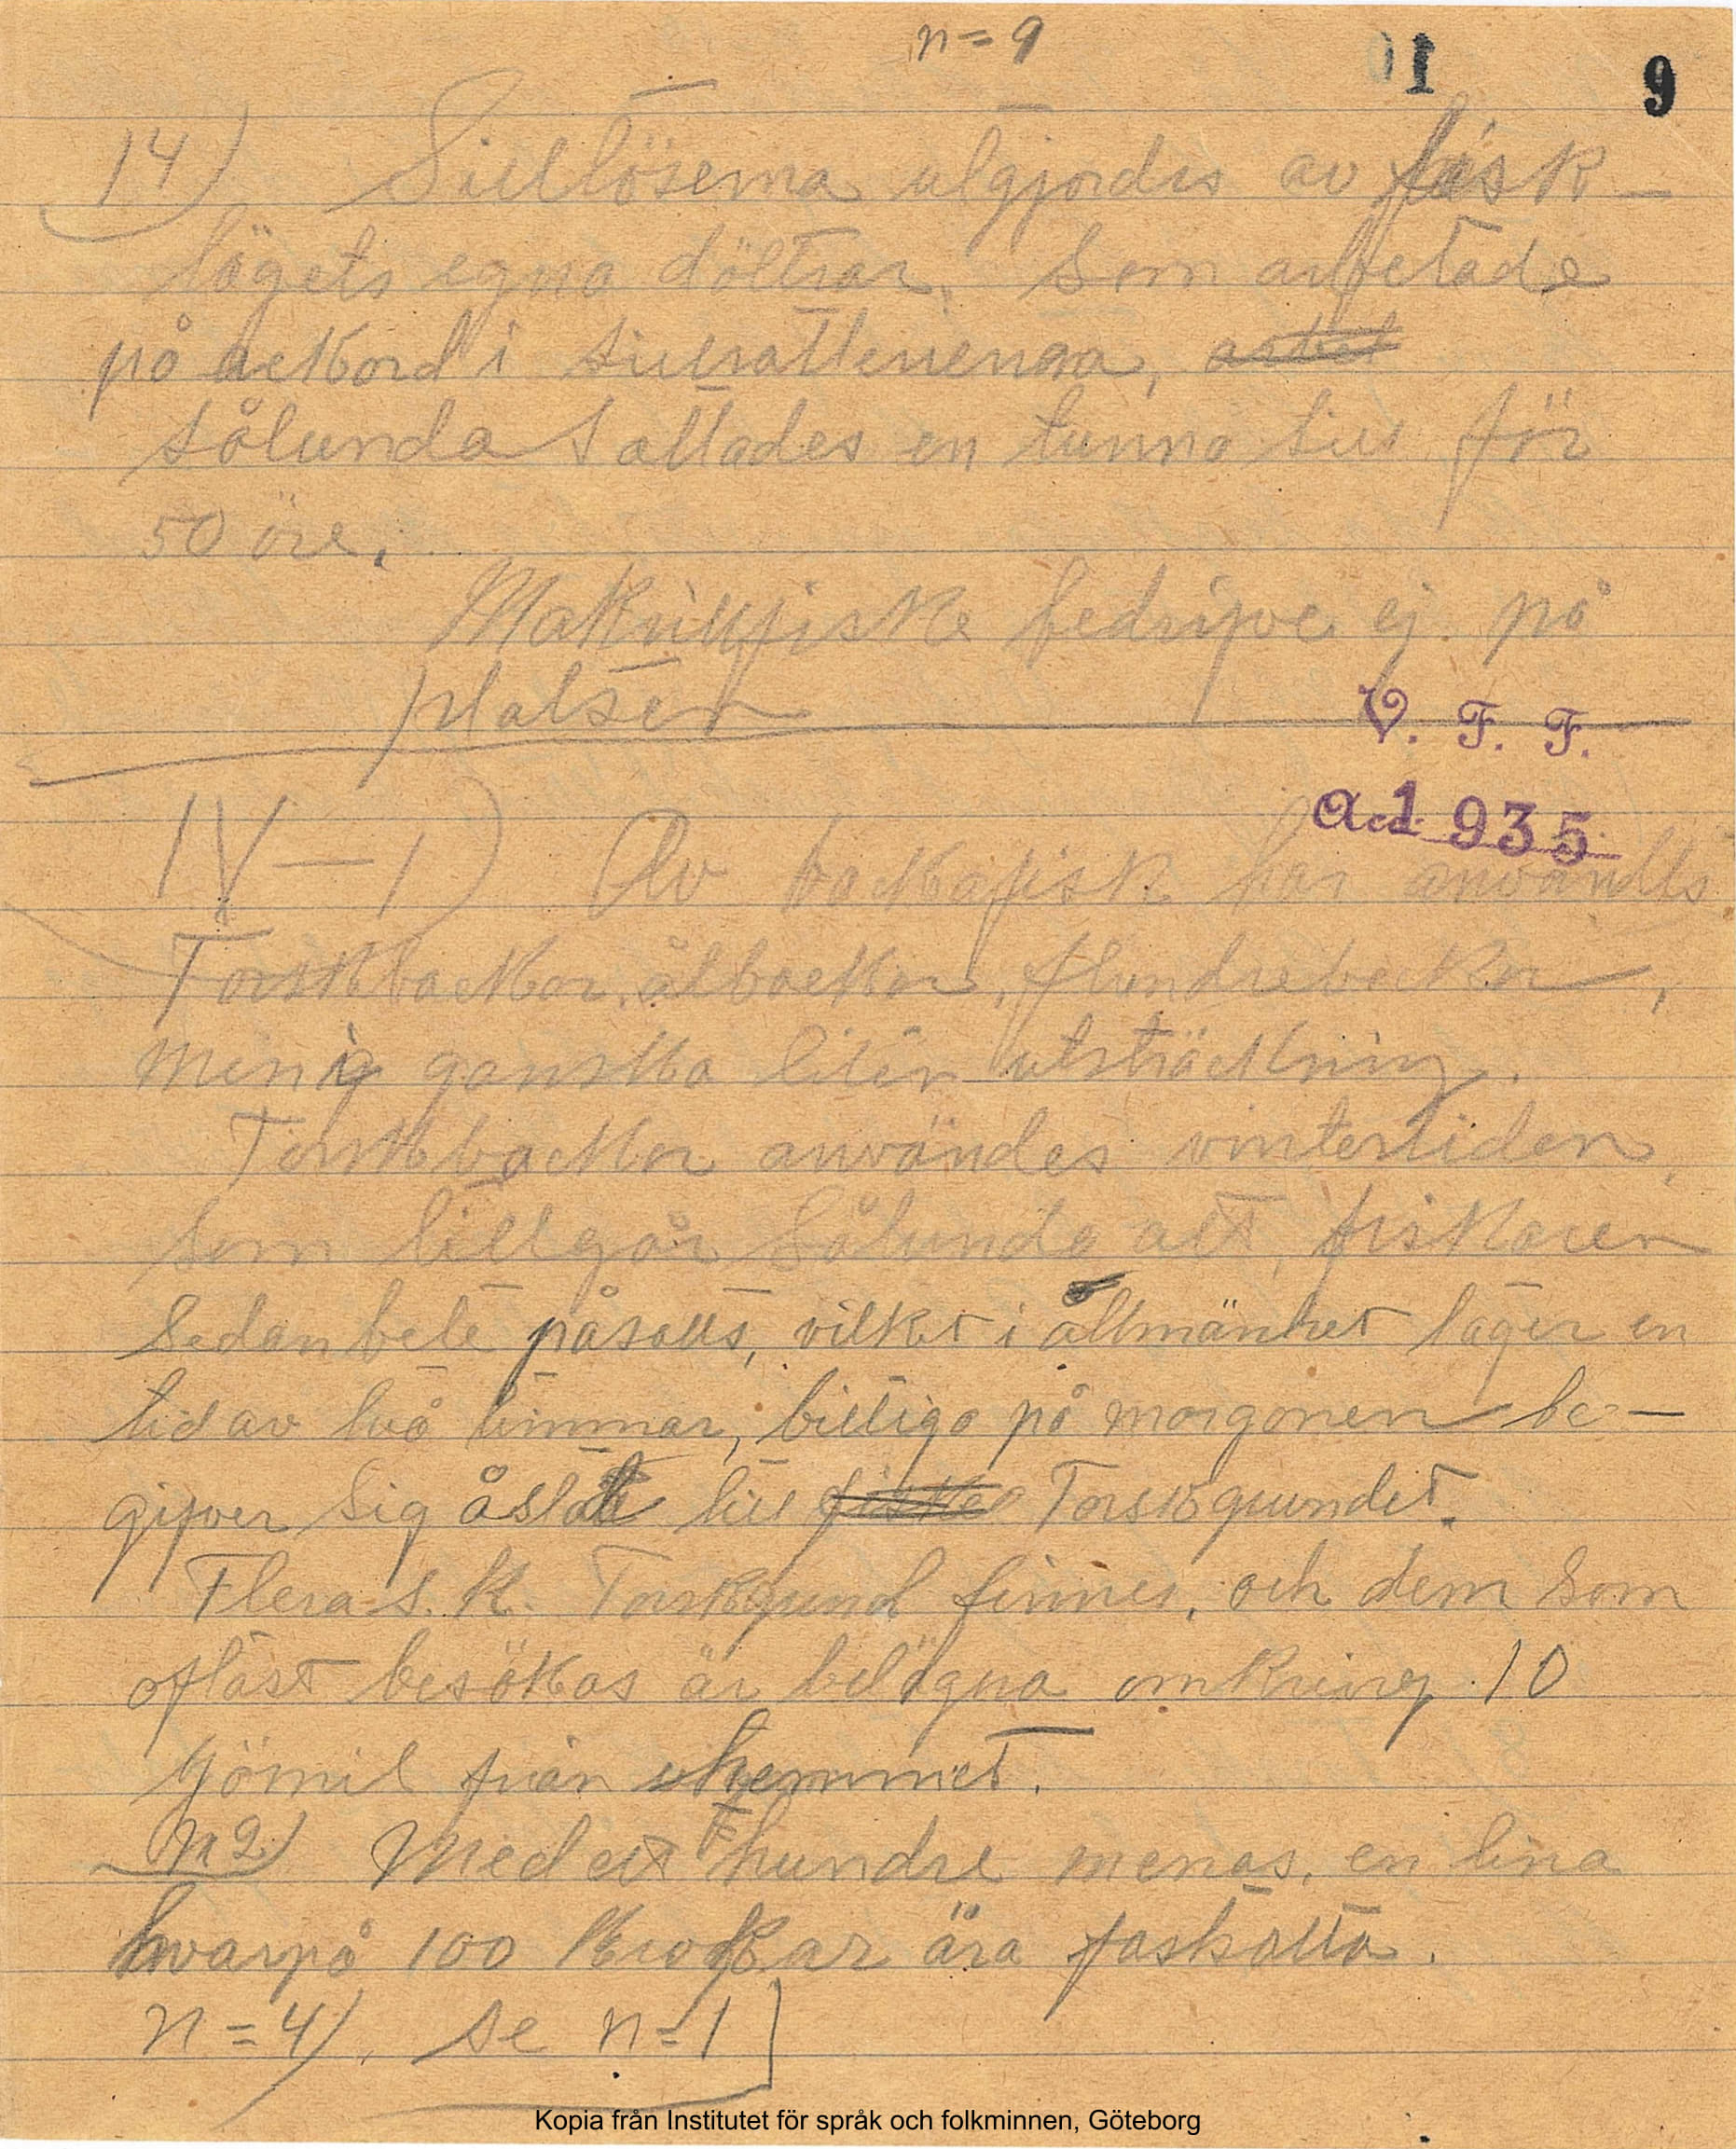 n = 9
01 9
14) Silltöserna utgjordes av fisk-
lägets egna döttrar, som arbetade
på ackord i sillsalterierna,
sålunda saltades en tunna sill för
50 öre.
Makrillfiske bedrives ej på
platsen
V. F. F.
Acc. 1935
IV-1) Av backafisk har användts
Torskbackor, ålbackor, flundrebackor,
men i ganska liten utsträckning.
Torskbackor användes vintertiden,
som tillgår sålunda att fiskaren
sedan bete påsatts, vilket i allmänhet tager en
tid av två timmar, bittiga på morgonen be-
gifver sig åstad till Torskgrundet.
Flera s.k. Torskgrund finnes, och dem som
oftast besökas är belägna omkring 10
sjömil från hemmet.
n 2) Med ett hundre menas, en lina
hvarpå 100 krokar ära fastsatta.
n = 4). se n = 1
Kopia från Institutet för språk och folkminnen, Göteborg